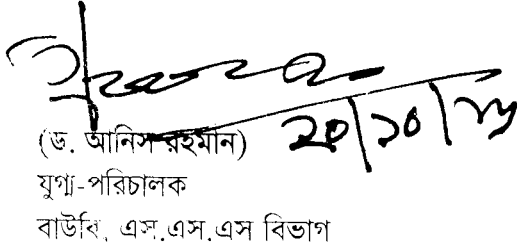 (ড. আনিস রহমান)
যুগ্ম-পরিচালক
বাউবি, এস.এস.এস বিভাগ